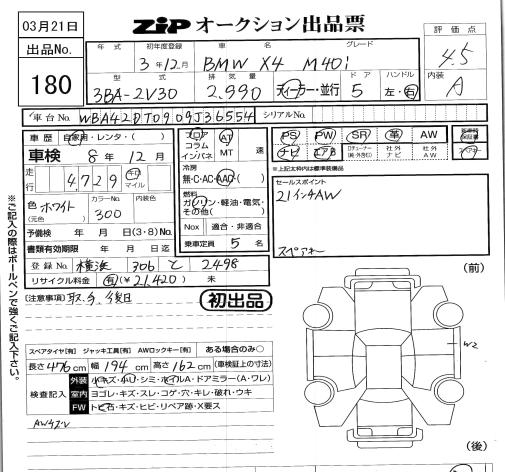 03月21日
ZiP オークション出品票
評価点
4.5
出品No.
180
年式 初年度登録 車名 グレード
3年12月 BMW X4 M40i
型式 排気量 ドア ハンドル
3BA-2V30 2.990 ディーラー・並行 5 左・右
内装
A
車台No. WBA42DT0909J36554 シリアルNo.
車歴 自家用・レンタ・( )
車検 8年12月
走行 4729 キロ マイル
色 ホワイト
(元色)
カラーNo.
300
内装色
予備検 年 月 日(3・8)No.
書類有効期限 年 月 日迄
登録No. 横浜 306 て 2498
リサイクル料金 有(¥21,420) 未
フロア AT
コラム
インパネ MT 速
冷房
無・C・AC・AAC・( )
燃料
ガソリン・軽油・電気・
その他( )
Nox 適合・非適合
乗車定員 5 名
PS PW SR 革 AW
ナビ エアB 社外ナビ 社外AW
※上記太枠内は標準装備品
セールスポイント
21インチAW
※ご記入の際はボールペンで強くご記入下さい。
(注意事項)
初出品
(前)
スペアタイヤ[有] ジャッキ工具[有] AWロックキー[有] ある場合のみ○
長さ476cm 幅194cm 高さ162cm (車検証上の寸法)
検査記入
外装 小キズ・小U・シミ・ホイルA・ドアミラー(A・ワレ)
室内 ヨゴレ・キズ・スレ・コゲ・穴・キレ・破れ・ウキ
FW トビ石・キズ・ヒビ・リペア跡・X要ス
W2
(後)